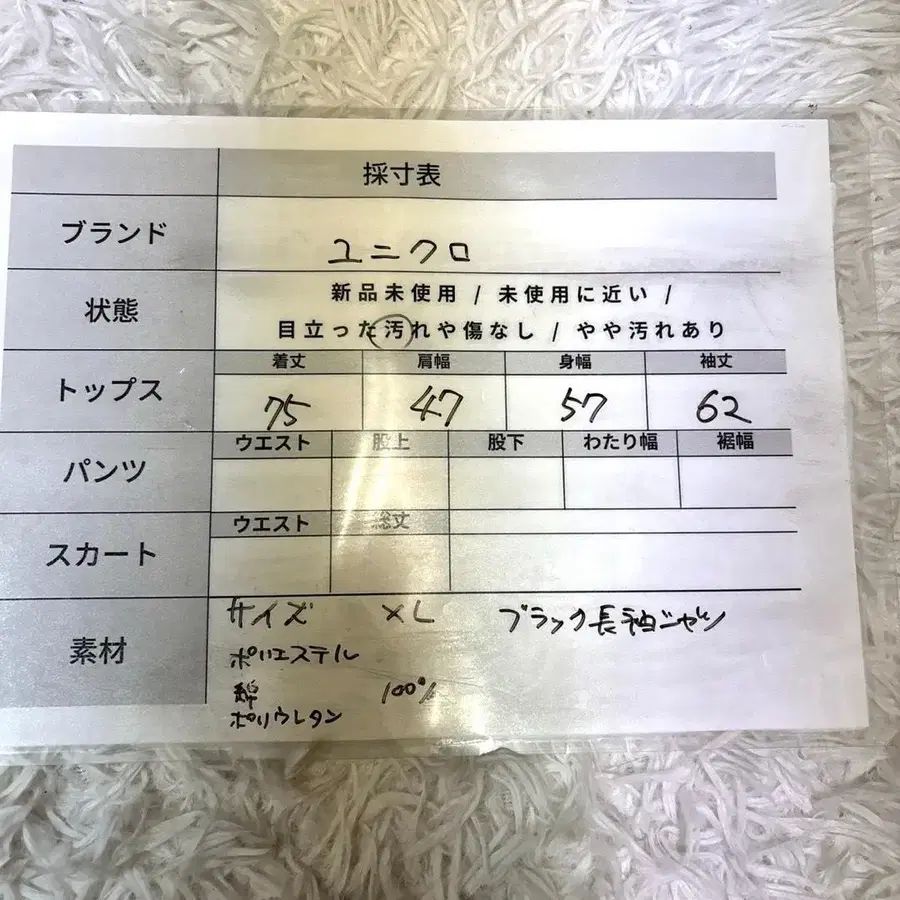 採寸表
ブランド ユニクロ
状態 新品未使用 / 未使用に近い /
目立った汚れや傷なし / やや汚れあり
トップス 着丈 肩幅 身幅 袖丈
75 47 57 62
パンツ ウエスト 股上 股下 わたり幅 裾幅
スカート ウエスト 総丈
素材 サイズ XL ブラック長袖シャツ
ポリエステル
綿 100%
ポリウレタン